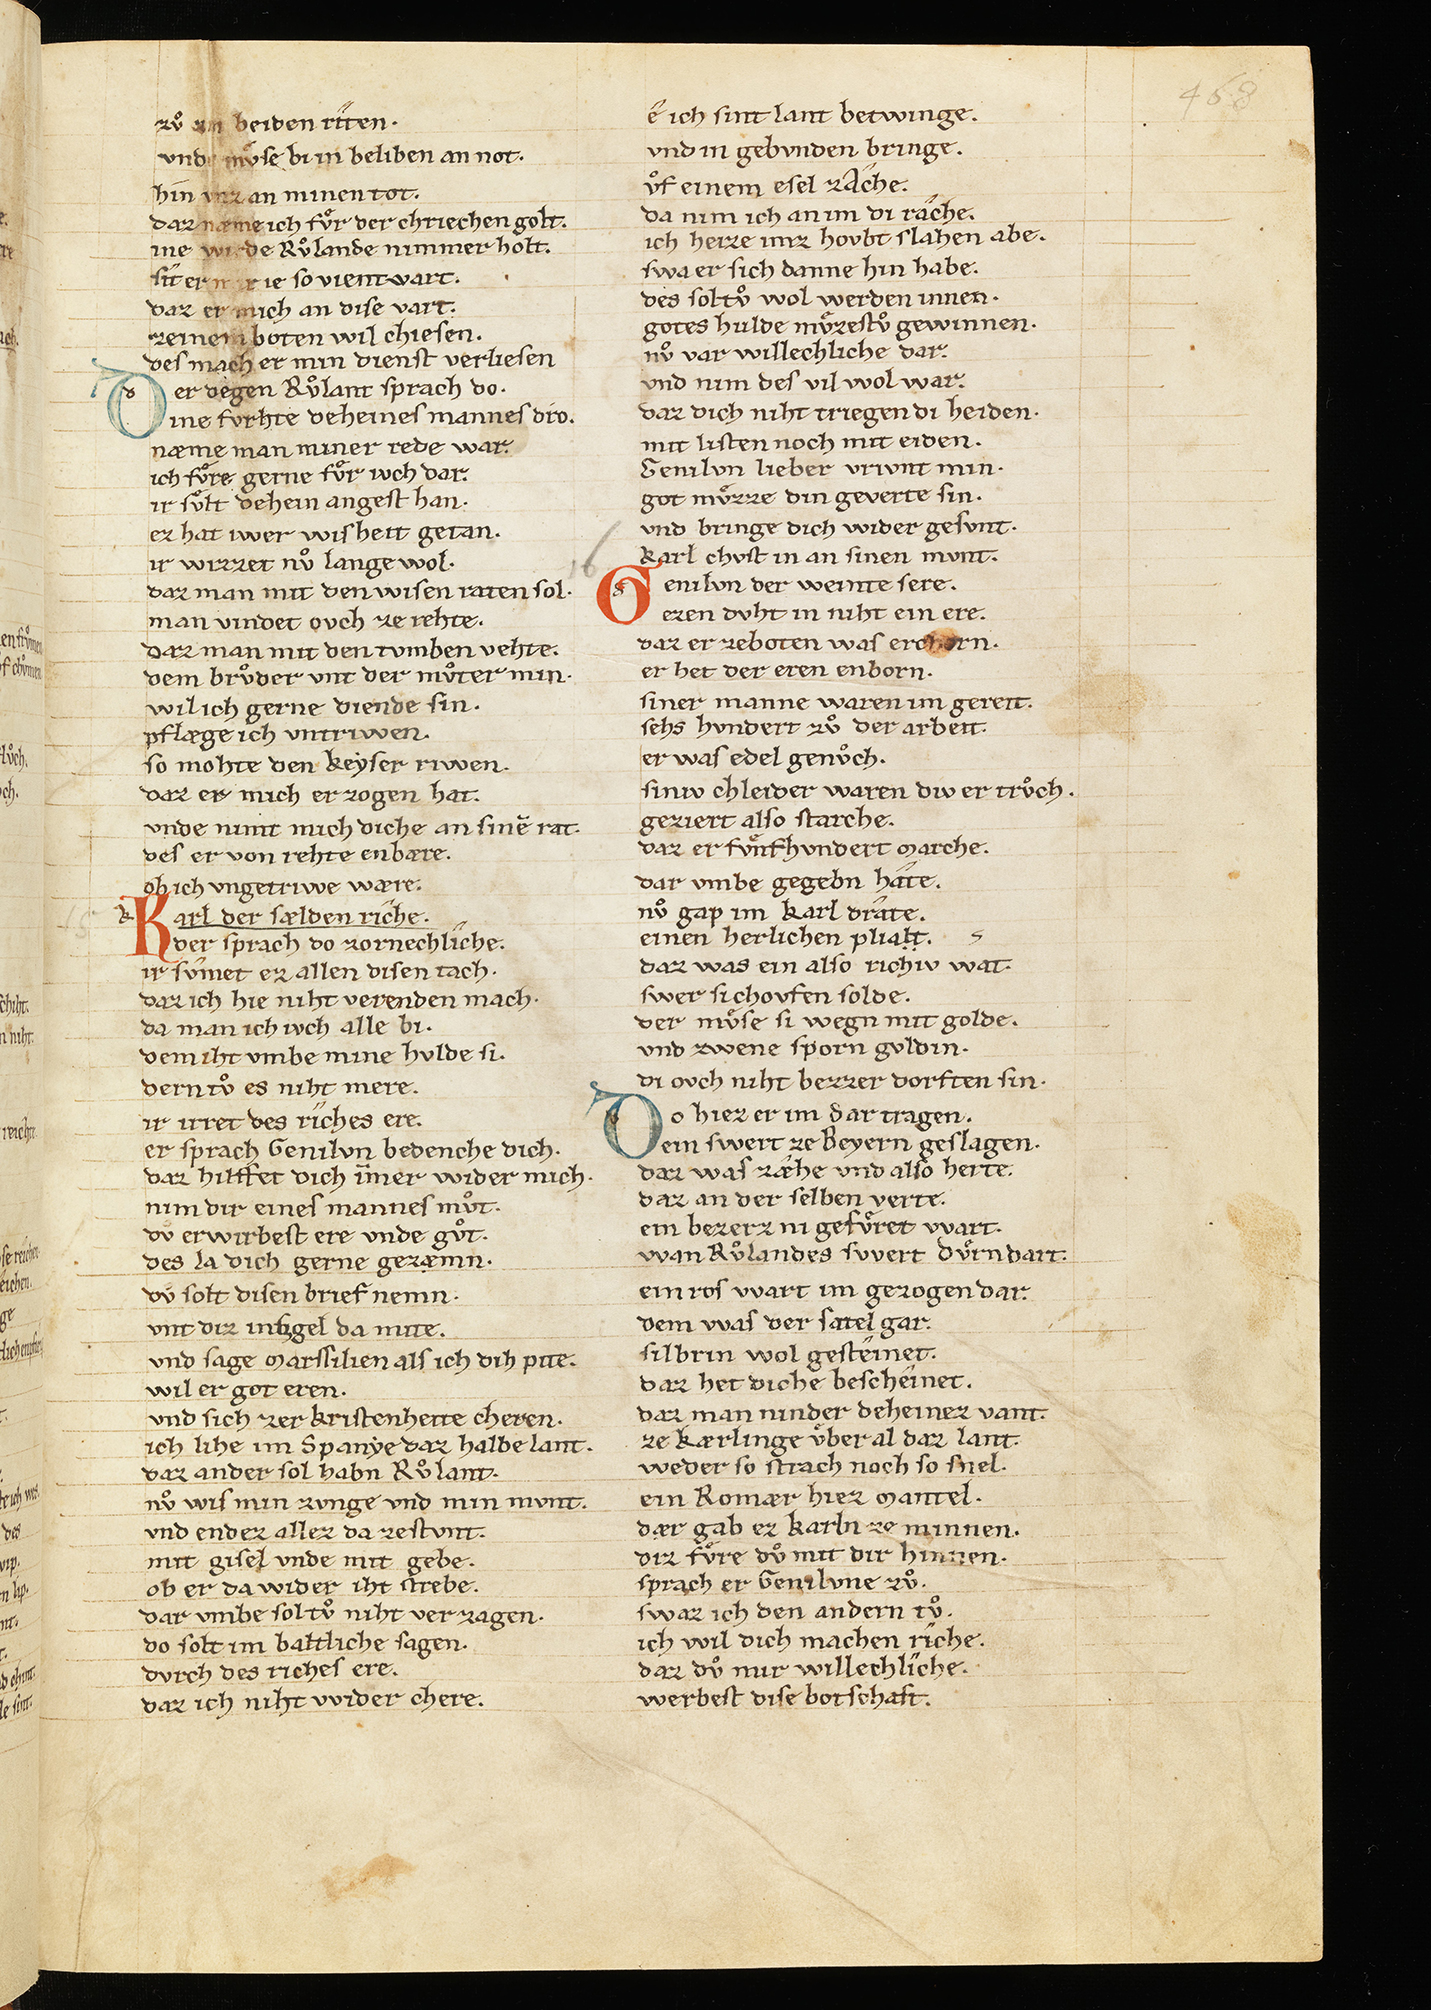 468
zů zin beiden riten.
vnde můse bi in beliben an not.
hin vnz an minen tot.
daz næme ich fůr der chriechen golt.
ine wirde Růlande nimmer holt.
sit er mir ie so vient wart.
daz er mich an dise vart.
zeinem boten wil chiesen.
des mach er min dienst verliesen
Der degen Růlant sprach do.
ine fvrhte deheines mannes dro.
næme man miner rede war.
ich fůre gerne fůr iwch dar.
ir svlt dehein angest han.
ez hat iwer wisheit getan.
ir wizzet nv̊ lange wol.
daz man mit den wisen raten sol.
man vindet ovch ze rehte.
daz man mit den tvmben vehte.
dem brůder vnt der můter min.
wil ich gerne diende sin.
pflæge ich vntriwen.
so mohte den keyser riwen.
daz er mich erzogen hat.
vnde nimt mich diche an sinē rat.
des er von rehte enbære.
ob ich vngetriwe wære.
Karl der sælden riche.
der sprach do zornechliche.
ir svmet ez allen disen tach.
daz ich hie niht verenden mach.
da man ich iwch alle bi.
dem iht vmbe mine hvlde si.
dern tů es niht mere.
ir irret des riches ere.
er sprach Genilvn bedenche dich.
daz hilffet dich im̄er wider mich.
nim dir eines mannes můt.
dv erwirbest ere vnde gůt.
des la dich gerne gezæmn.
dv solt disen brief nemn.
vnt diz insigel da mite.
vnd sage Marssilien als ich dih pite.
wil er got eren.
vnd sich zer kristenheite cheren.
ich lihe im Spanye daz halbe lant.
daz ander sol habn Růlant.
nv̊ wis min zvnge vnd min mvnt.
vnd endez allez da zestvnt.
mit gisel vnde mit gebe.
ob er da wider iht strebe.
dar vmbe soltv̊ niht verzagen.
do solt im baltliche sagen.
dvrch des riches ere.
daz ich niht wider chere.
ê ich sint lant betwinge.
vnd in gebvnden bringe.
v̊f einem esel zAche.
da nim ich an im di rache.
ich heize imz hovbt slahen abe.
swa er sich danne hin habe.
des soltv̊ wol werden innen.
gotes hulde můzestv̊ gewinnen.
nv̊ var willechliche dar.
vnd nim des vil wol war.
daz dich niht triegen di heiden.
mit listen noch mit eiden.
Genilvn lieber vrivnt min.
got můzze din geverte sin.
vnd bringe dich wider gesvnt.
karl chvst in an sinen mvnt.
Genilvn der weinte sere.
ezen dvht in niht ein ere.
daz er zeboten was erchorn.
er het der eren enborn.
siner manne waren im gereit.
sehs hvndert zů der arbeit.
er was edel genůch.
siniv chleider waren div er trůch.
geziert also starche.
daz er fůnfhvndert Marche.
dar vmbe gegebn hate.
nv̊ gap im karl drate.
einen herlichen plialt.
daz was ein also richiv wat.
swer si chovfen solde.
der můse si wegn mit golde.
vnd zwene sporn gvldin.
di ovch niht bezzer dorften sin.
Do hiez er im dar tragen.
ein swert ze Beyern geslagen.
daz was zæhe vnd also herte.
daz an der selben verte.
ein bezerz ni gefůret wart.
wan Růlandes swert Důrndart.
ein ros wart im gezogen dar.
dem was der satel gar.
silbrin wol gesteinet.
daz het diche bescheinet.
daz man ninder deheinez vant.
ze kærlinge v̊ber al daz lant.
weder so strach noch so snel.
ein Romær hiez Mantel.
dær gab ez karln ze minnen.
diz fůre dv̊ mit dir hinnen.
sprach er Genilvne zů.
swaz ich den andern tů.
ich wil dich machen riche.
daz dv̊ mir willechliche.
werbest dise botschaft.